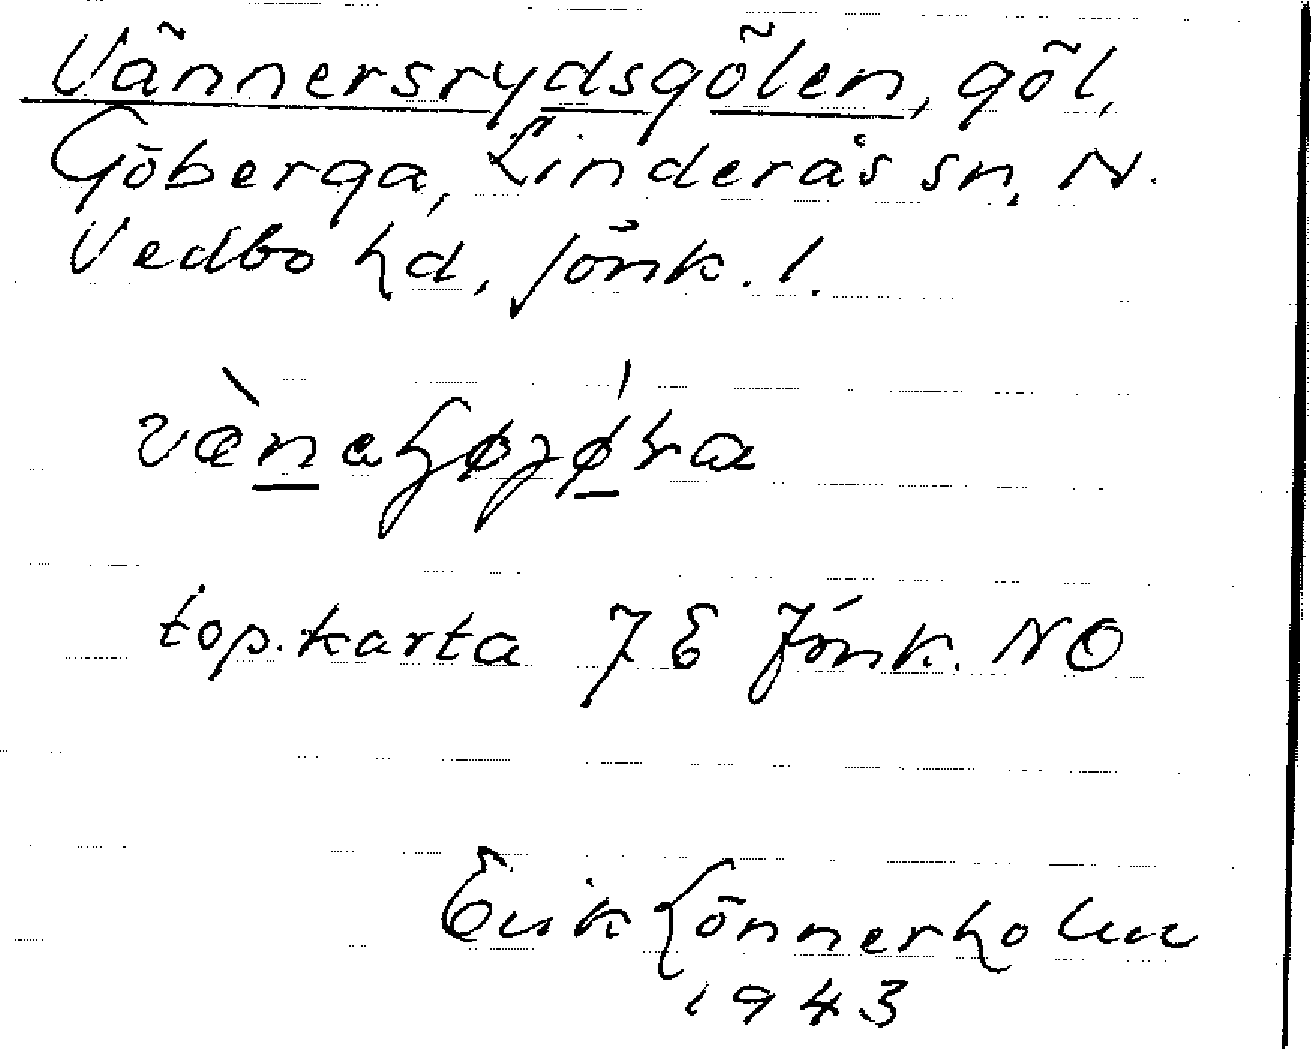 Vännersrydsgölen, göl,
Göberga, Linderås sn, N.
Vedbo hd, Jönk. l.
top.karta 7 E Jönk. NO
Erik Lönnerholm
1943